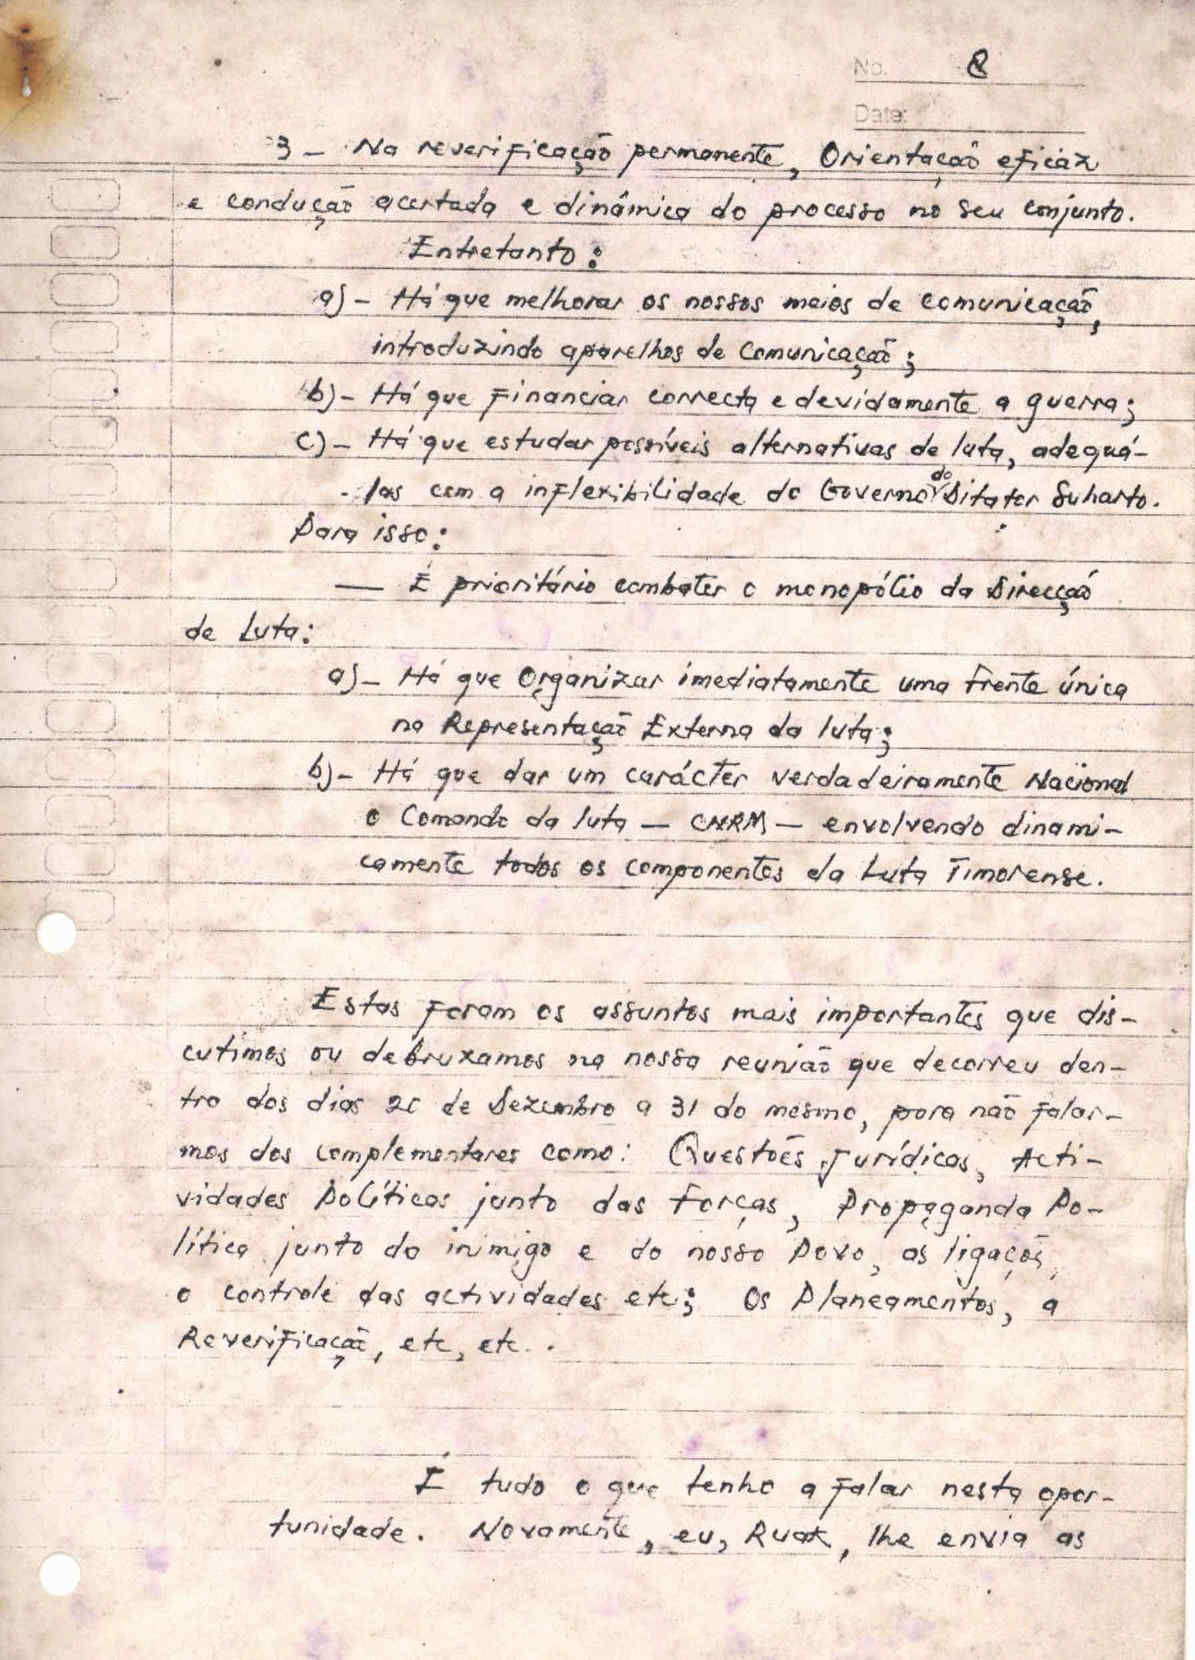 No. 8
Date:
3 - Na reverificação permanente, Orientação eficáz
e condução acertada e dinâmica do processo no seu conjunto.
Entretanto:
a) - Há que melhorar os nossos meios de comunicação,
introduzindo aparelhos de comunicação;
b) - Há que financiar correcta e devidamente a guerra;
c) - Há que estudar possíveis alternativas de luta, adequá-
-las com a inflexibilidade do Governo do Ditator Suharto.
Para isso:
— É prioritário combater o monopólio da Direcção
de Luta:
a) - Há que Organizar imediatamente uma frente única
na Representação Externa da luta;
b) - Há que dar um carácter verdadeiramente Nacional
o Comando da luta — CNRM — envolvendo dinami-
camente todos os componentes da Luta Timorense.
Estas foram os assuntos mais importantes que dis-
cutimos ou debruxamos na nossa reunião que decorreu den-
tro dos dias 20 de Dezembro a 31 do mesmo, para não falar-
mos dos complementares como: Questões Jurídicas, Acti-
vidades Políticas junto das Forças, Propaganda Po-
lítica junto do inimigo e do nosso Povo, as ligações,
o controle das actividades etc; Os Planeamentos, a
Reverificação, etc, etc..
É tudo o que tenho a falar nesta opor-
tunidade. Novamente, eu, Ruak, lhe envia as